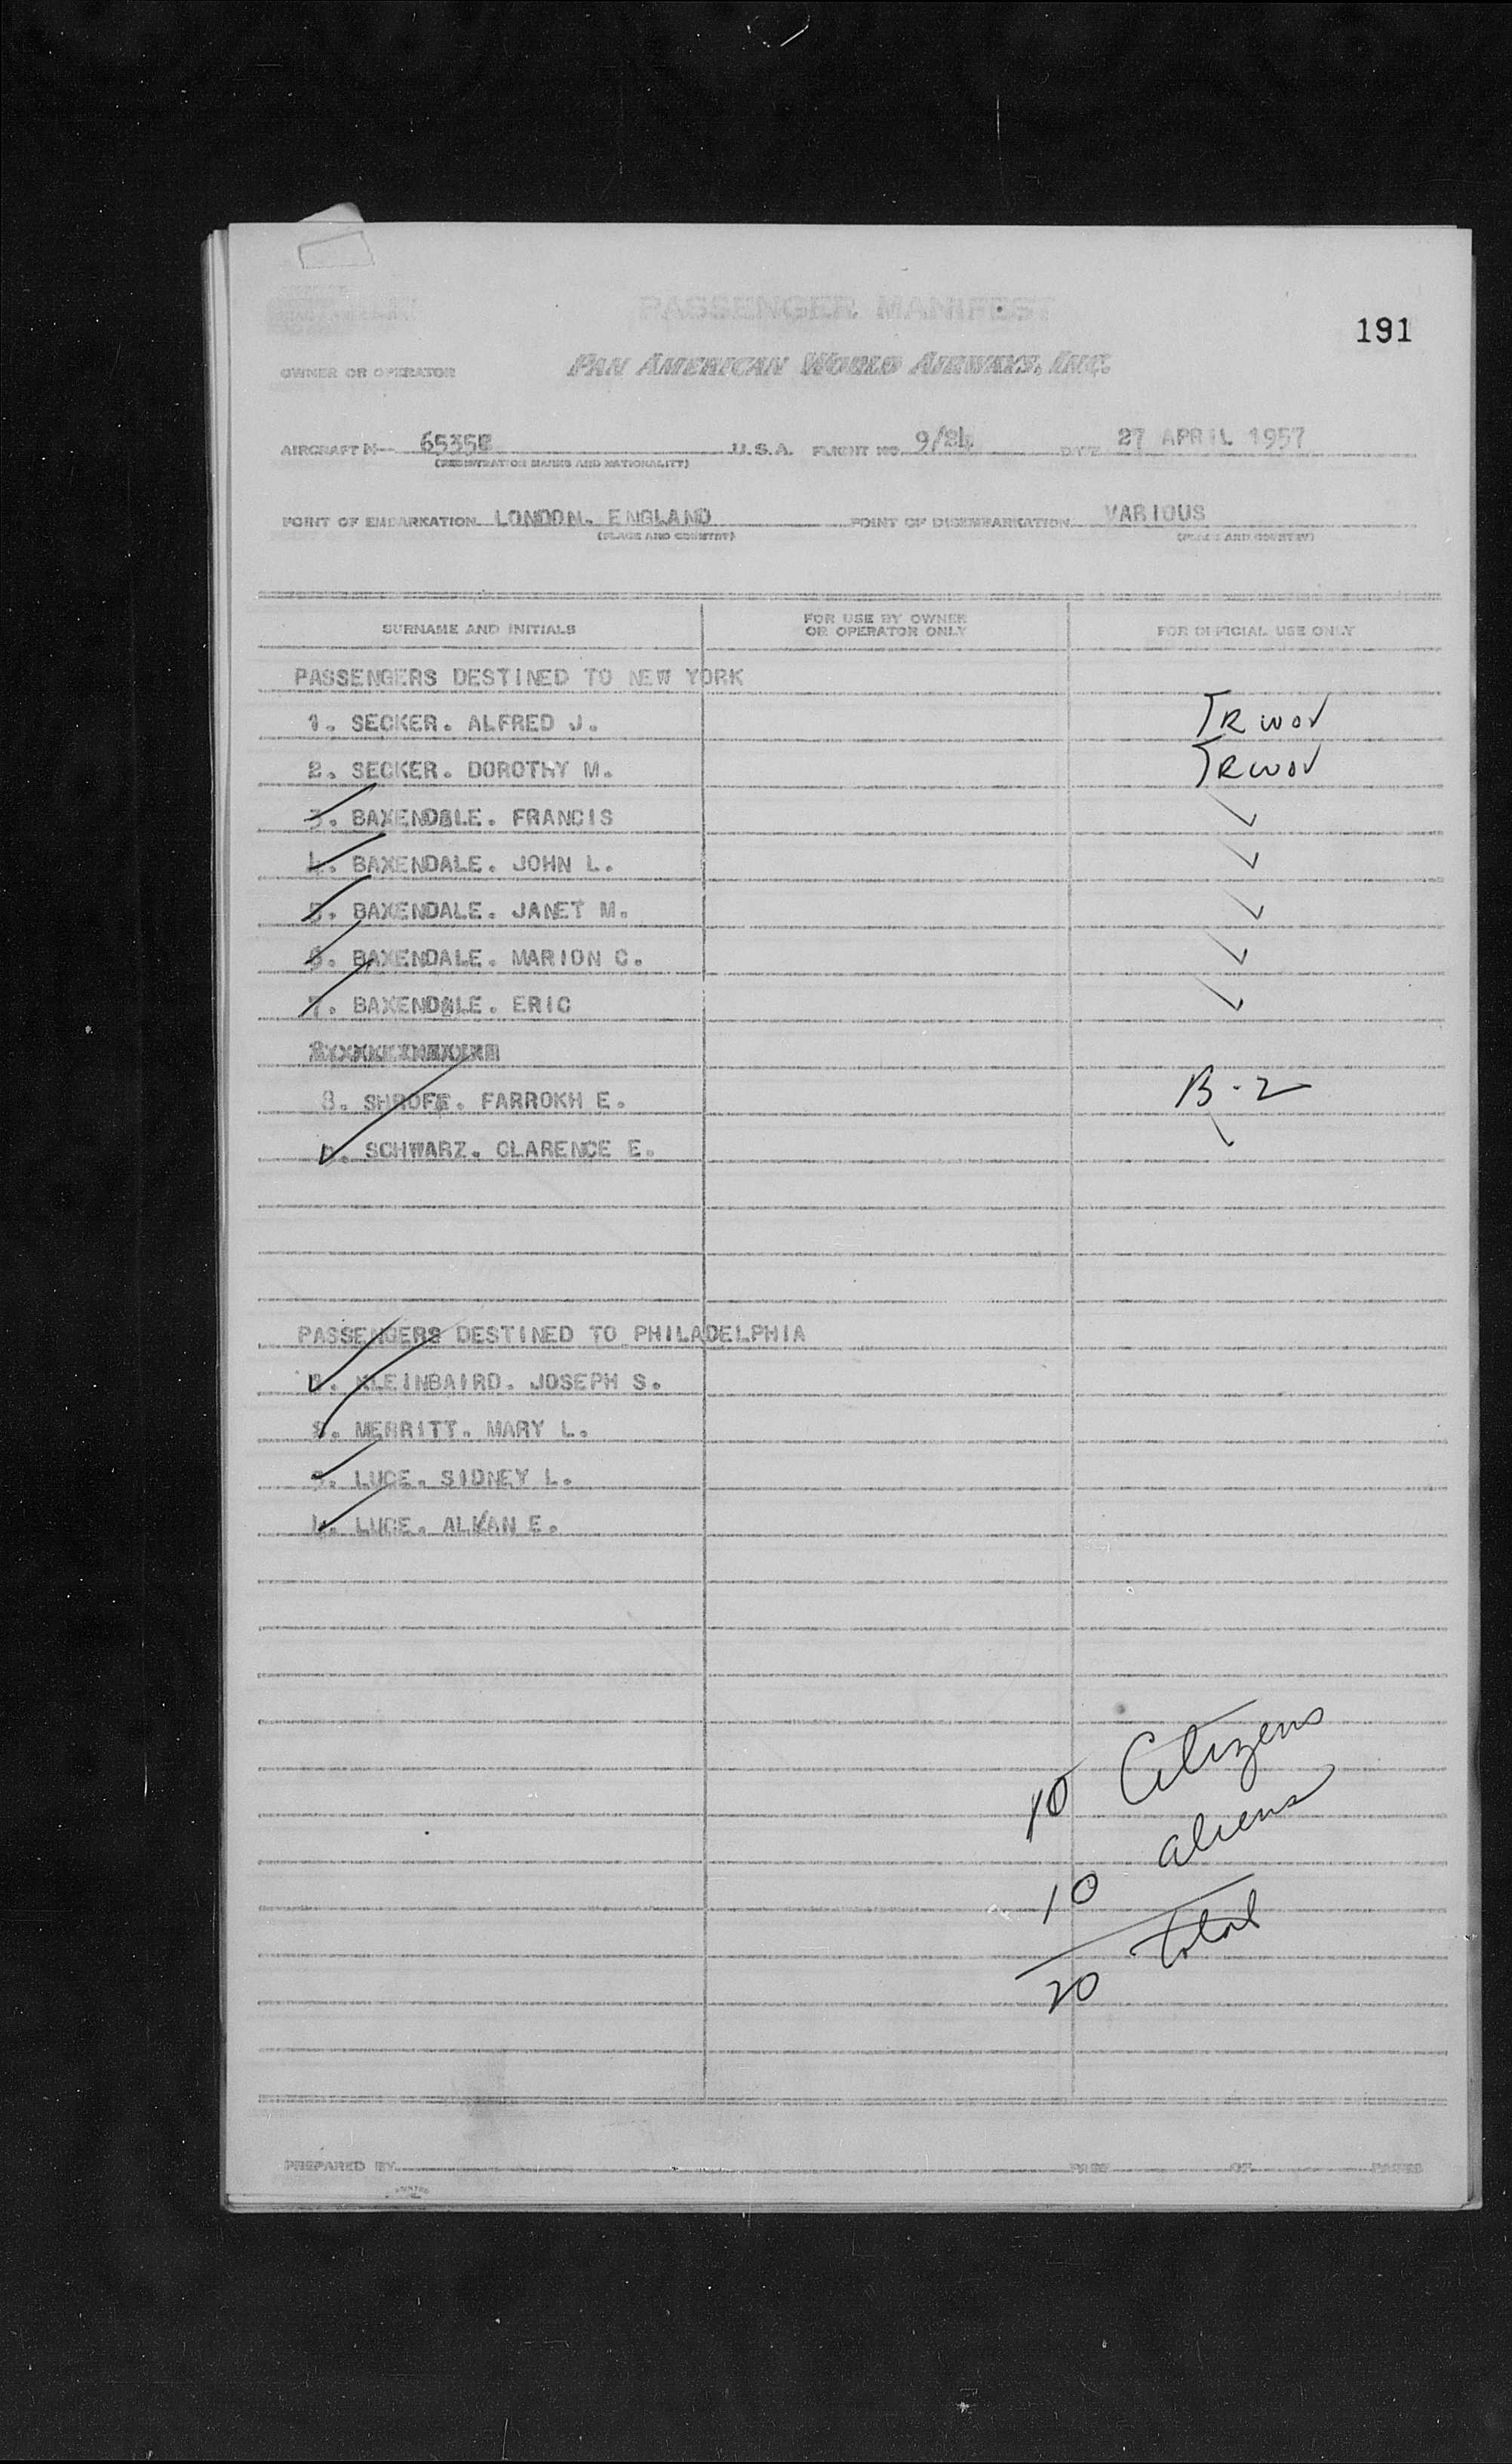 PASSENGER MANIFEST
191
OWNER OR OPERATOR PAN AMERICAN WORLD AIRWAYS, INC.
AIRCRAFT N— U.S.A. FLIGHT NO. DATE 27 APRIL 1957
(REGISTRATION MARKS AND NATIONALITY)
POINT OF EMBARKATION LONDON. ENGLAND POINT OF DISEMBARKATION VARIOUS
(PLACE AND COUNTRY) (PLACE AND COUNTRY)
SURNAME AND INITIALS FOR USE BY OWNER OR OPERATOR ONLY FOR OFFICIAL USE ONLY
PASSENGERS DESTINED TO NEW YORK
1. SECKER. ALFRED J. TRWOV
2. SECKER. DOROTHY M. TRWOV
3. BAXENDALE. FRANCIS ✓
4. BAXENDALE. JOHN L. ✓
5. BAXENDALE. JANET M. ✓
6. BAXENDALE. MARION C. ✓
7. BAXENDALE. ERIC ✓
8. SHROFF. FARROKH E. B-2
9. SCHWARZ. CLARENCE E.
PASSENGERS DESTINED TO PHILADELPHIA
1. KLEINBAIRD. JOSEPH S.
2. MERRITT. MARY L.
3. LUCE. SIDNEY L.
4. LUCE. E.
10 Citizens
10 aliens
20 total
PREPARED BY PAGE OF PAGES